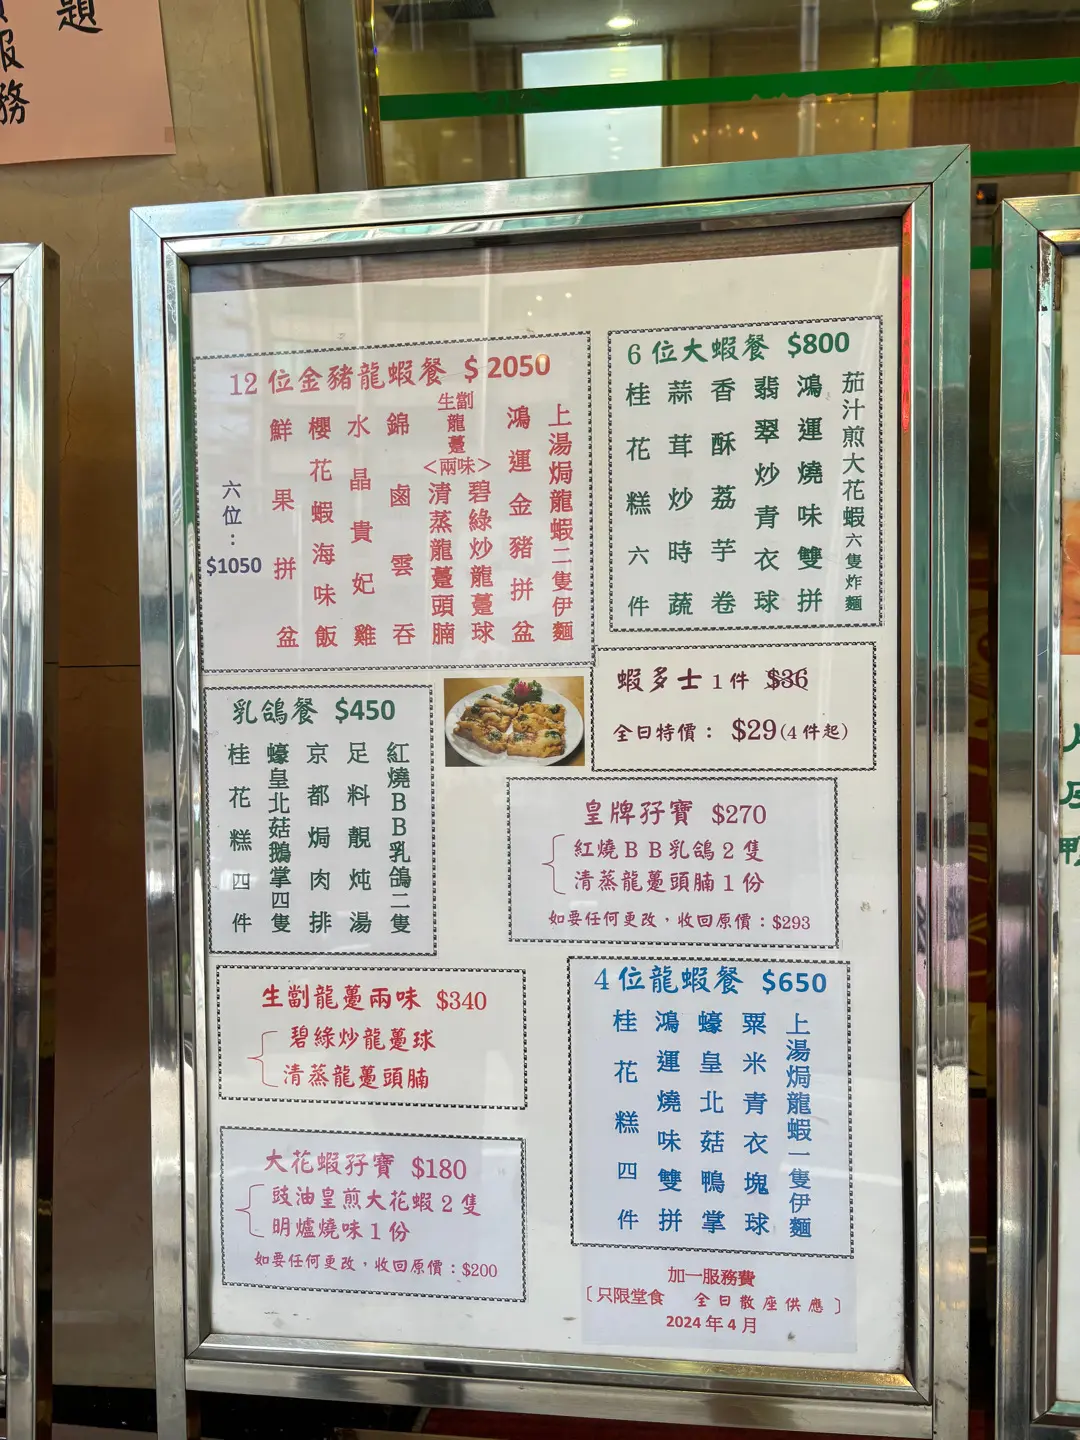 題
服務
12位金豬龍蝦餐 $2050
上湯焗龍蝦二隻伊麵
鴻運金豬拼盆
生劏龍躉
<兩味>
碧綠炒龍躉球
清蒸龍躉頭腩
錦鹵雲吞
水晶貴妃雞
櫻花蝦海味飯
鮮果拼盆
六位：
$1050
6位大蝦餐 $800
茄汁煎大花蝦六隻炸麵
鴻運燒味雙拼
翡翠炒青衣球
香酥荔芋卷
蒜茸炒時蔬
桂花糕六件
蝦多士1件 $36
全日特價：$29(4件起)
乳鴿餐 $450
紅燒BB乳鴿二隻
足料靚炖湯
京都焗肉排
蠔皇北菇鵝掌四隻
桂花糕四件
皇牌孖寶 $270
紅燒BB乳鴿2隻
清蒸龍躉頭腩1份
如要任何更改，收回原價：$293
生劏龍躉兩味 $340
碧綠炒龍躉球
清蒸龍躉頭腩
4位龍蝦餐 $650
上湯焗龍蝦一隻伊麵
粟米青衣塊球
蠔皇北菇鴨掌
鴻運燒味雙拼
桂花糕四件
大花蝦孖寶 $180
豉油皇煎大花蝦2隻
明爐燒味1份
如要任何更改，收回原價：$200
加一服務費
〔只限堂食 全日散座供應〕
2024年4月